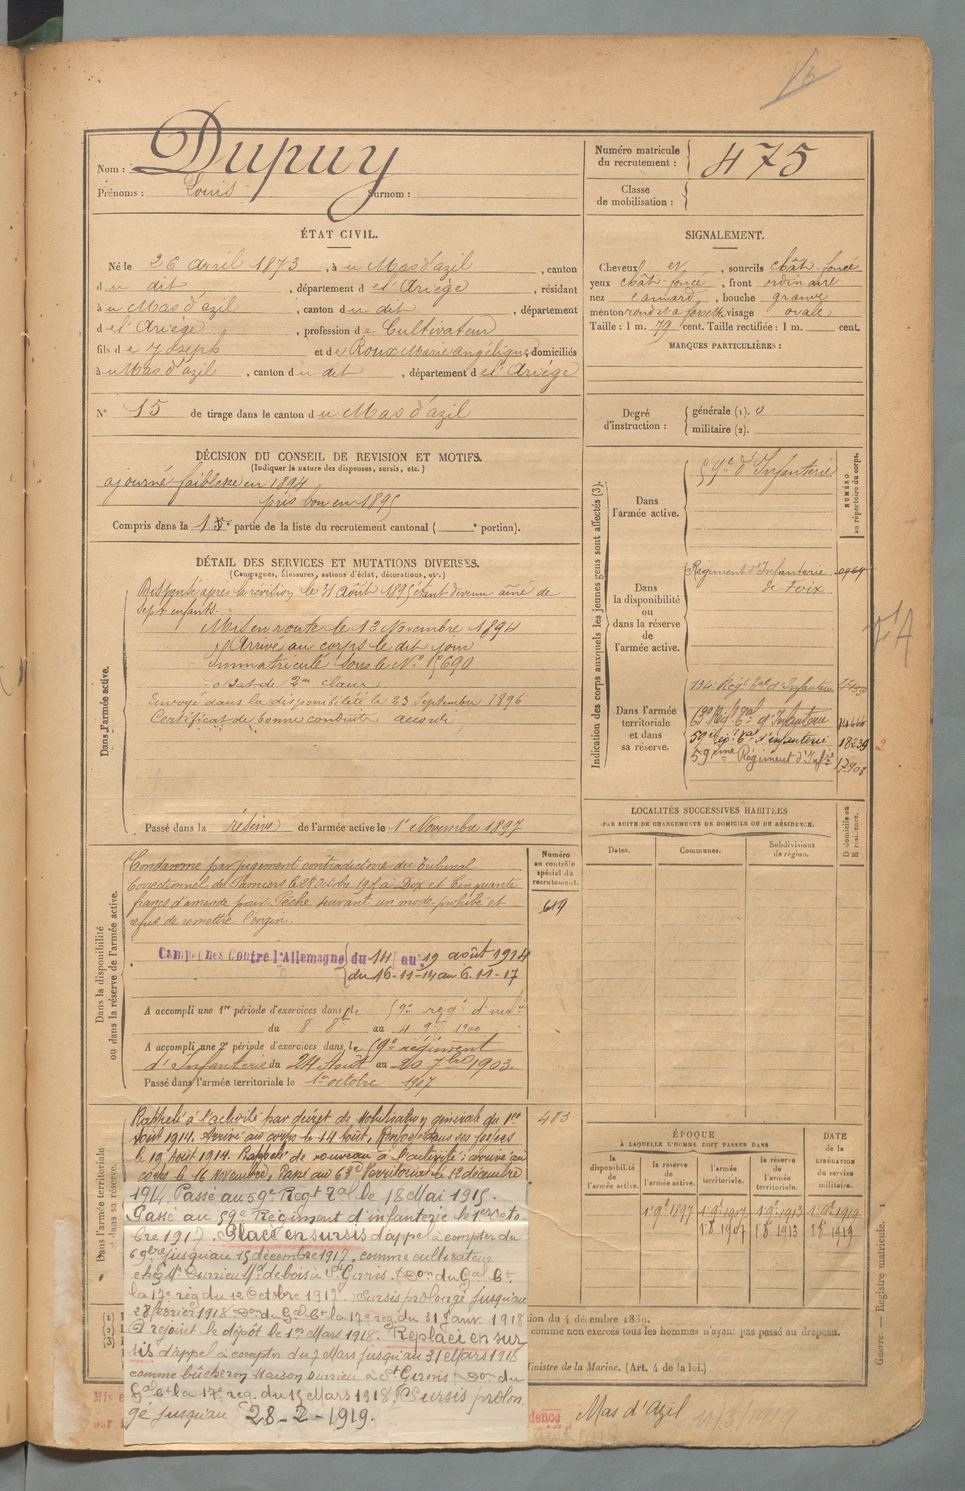 Nom : Dupuy
Prénoms : Louis Surnom :
Numéro matricule du recrutement : 475
Classe de mobilisation :
ÉTAT CIVIL.
Né le 26 avril 1873, à u Mas d'azil, canton
d u dit, département d e l'Ariège, résidant
à u Mas d'azil, canton d u dit, département
d e l'Ariège, profession d e Cultivateur
fils d e Joseph et d e Roux Marie Angélique, domiciliés
à u Mas d'azil, canton d u dit, département d e l'Ariège
N° 15 de tirage dans le canton d u Mas d'azil
SIGNALEMENT.
Cheveux et, sourcils chât. foncé
yeux chât. foncé, front ordinaire
nez camard, bouche grande
menton rond et à fossette visage ovale
Taille : 1 m. 79 cent. Taille rectifiée : 1 m. cent.
MARQUES PARTICULIÈRES :
Degré d'instruction : générale (1). 0
militaire (2).
DÉCISION DU CONSEIL DE REVISION ET MOTIFS.
(Indiquer la nature des dispenses, sursis, etc.)
ajourné faiblesse en 1894
pris bon en 1895
Compris dans la 1re partie de la liste du recrutement cantonal ( e portion).
DÉTAIL DES SERVICES ET MUTATIONS DIVERSES.
(Campagnes, blessures, actions d'éclat, décorations, etc.)
Dans l'armée active.
Dispensé après la révision le 31 août 1895 étant devenu aîné de
sept enfants.
Mis en route le 13 Novembre 1894
Arrivé au corps le dit jour
Immatriculé sous le N°
Soldat de 2me classe
Envoyé dans la disponibilité le 23 Septembre 1896
Certificat de bonne conduite accordé
Passé dans la réserve de l'armée active le 1er Novembre 1897
Indication des corps auxquels les jeunes gens sont affectés (3).
NUMÉRO au répertoire du corps.
Dans l'armée active.
59e d'Infanterie
Dans la disponibilité ou dans la réserve de l'armée active.
Régiment d'Infanterie
de Foix
Dans l'armée territoriale et dans sa réserve.
134e Régt tal d'Infanterie
59e Régt tal d'infanterie 18239
59eme Régiment d'Infie 17903
LOCALITÉS SUCCESSIVES HABITÉES
PAR SUITE DE CHANGEMENTS DE DOMICILE OU DE RÉSIDENCE.
Dates. Communes. Subdivisions de région. D domicile ou R résidence.
Dans la disponibilité ou dans la réserve de l'armée active.
Numéro au contrôle spécial du recrutement.
619
Condamné par jugement contradictoire du Tribunal
Correctionnel de Pamiers le 28 octobre à Dix et Cinquante
francs d'amende pour Pêche suivant un mode prohibé et
refus de remettre l'engin.
Campagnes Contre l'Allemagne du 14 au 19 août 1914
du 16-11-14 au 6-11-17
A accompli une 1re période d'exercices dans le 59e régt d'infie
du 8 8bre au 4 9bre 1900
A accompli une 2e période d'exercices dans le 59e régiment
d'Infanterie du 24 Août au 20 7bre 1903.
Passé dans l'armée territoriale le 1er octobre 1907
Dans l'armée territoriale et dans sa réserve.
483
Rappelé à l'activité par décret de Mobilisation générale du 1er
Août 1914. Arrivé au corps le 14 Août, Renvoyé dans ses foyers
le 19 Août 1914. Rappelé de nouveau à l'activité : arrivé au
corps le 16 Novembre, Passé au Territorial le 12 décembre
1914 Passé au 59e Régt Tal le 18 Mai 1915.
Passé au 59e Régiment d'infanterie le 1er octo
bre 1917. Placé en sursis d'appel à compter du
6 9bre jusqu'au 15 décembre 1917, comme cultivateur
chez Mr Durrieu Md de bois à St Girons. Don du Gal Ct
la 17e rég. du 12 Octobre 1917. Sursis prolongé jusqu'au
28 février 1918 Don du Gal Ct la 17e rég. du 31 Janv. 1918
A rejoint le dépôt le 1er Mars 1918. Replacé en sur
sis d'appel à compter du 7 Mars jusqu'au 31 Mars 1918
comme bûcheron Maison Durrieu à St Girons. Don du
Gal Ct la 17e rég. du 15 Mars 1918. Sursis prolon
gé jusqu'au 28-2-1919.
ÉPOQUE
À LAQUELLE L'HOMME DOIT PASSER DANS
DATE de la LIBÉRATION du service militaire.
la disponibilité de l'armée active. la réserve de l'armée active. l'armée territoriale. la réserve de l'armée territoriale.
1 9bre 1897 1 9bre 1907 1 9bre 1913 1 9bre 1919
1 8bre 1907 1 8bre 1913 1 8bre 1919
comme non exercés tous les hommes n'ayant pas passé au drapeau.
Ministre de la Marine. (Art. 4 de la loi.)
Mas d'Azil
Guerre. Registre matricule. 1